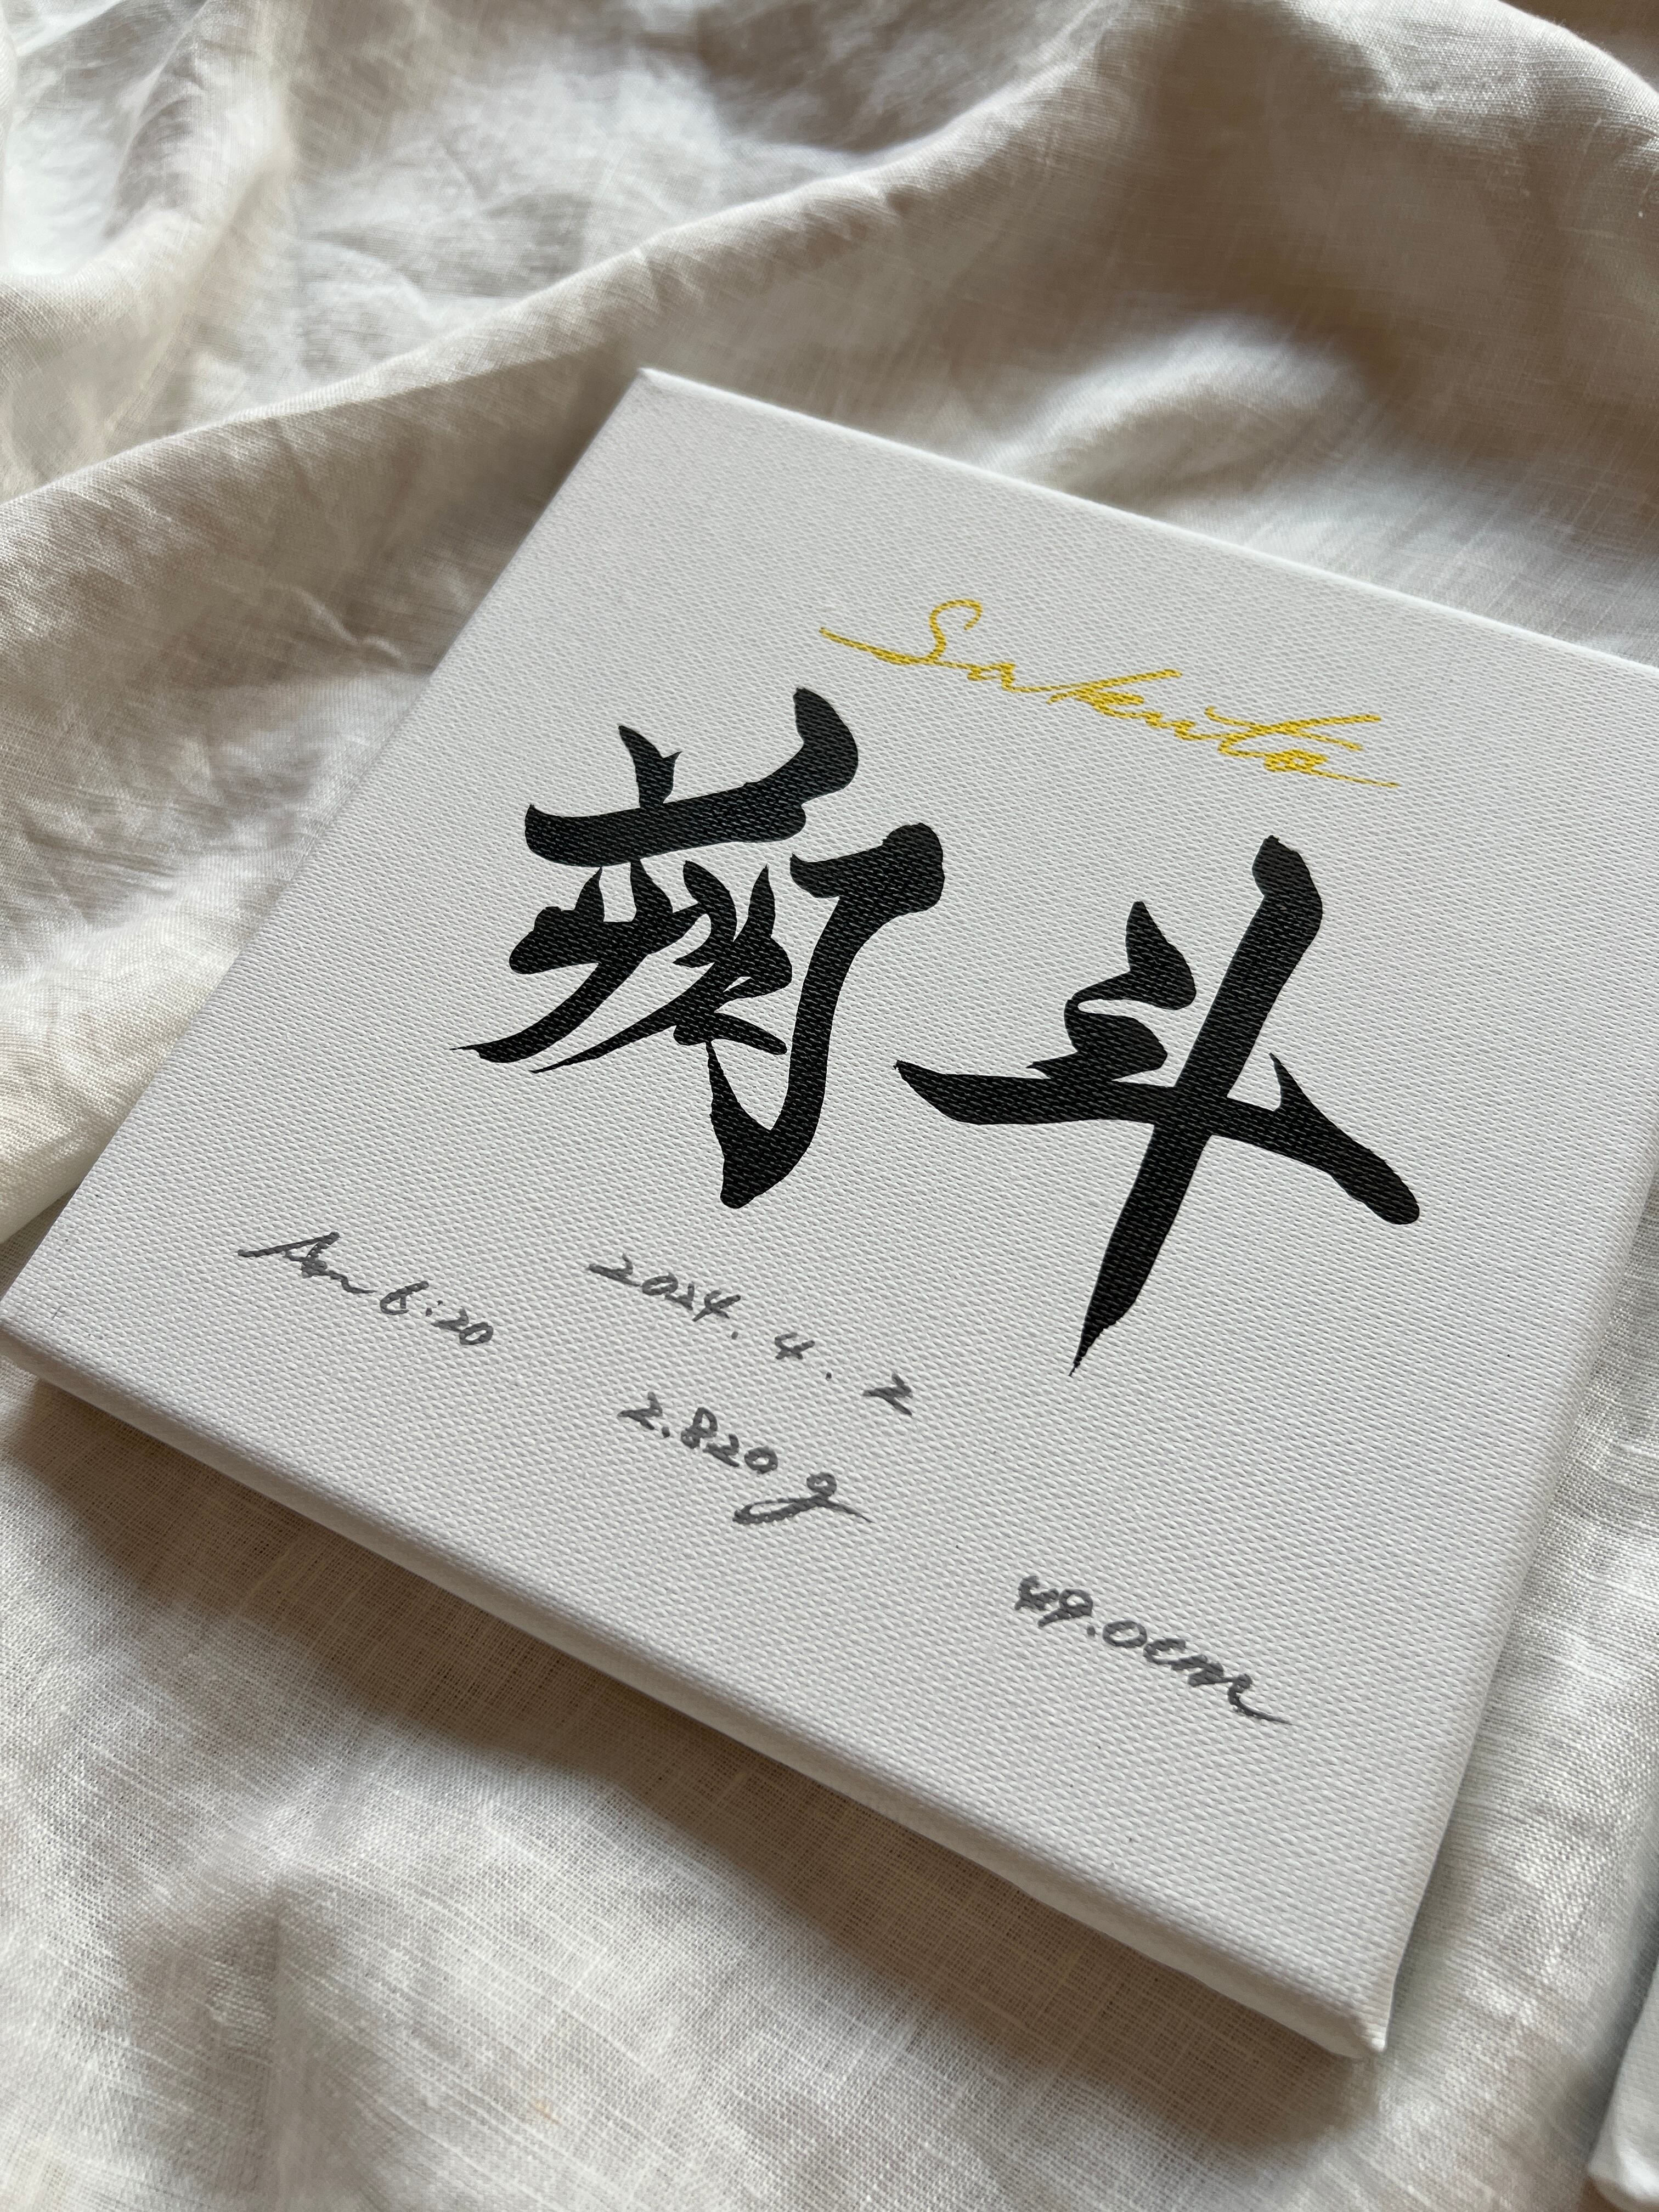 Sakuto
朔斗
2024.4.2
Am 6:20
2.820g
49.0cm